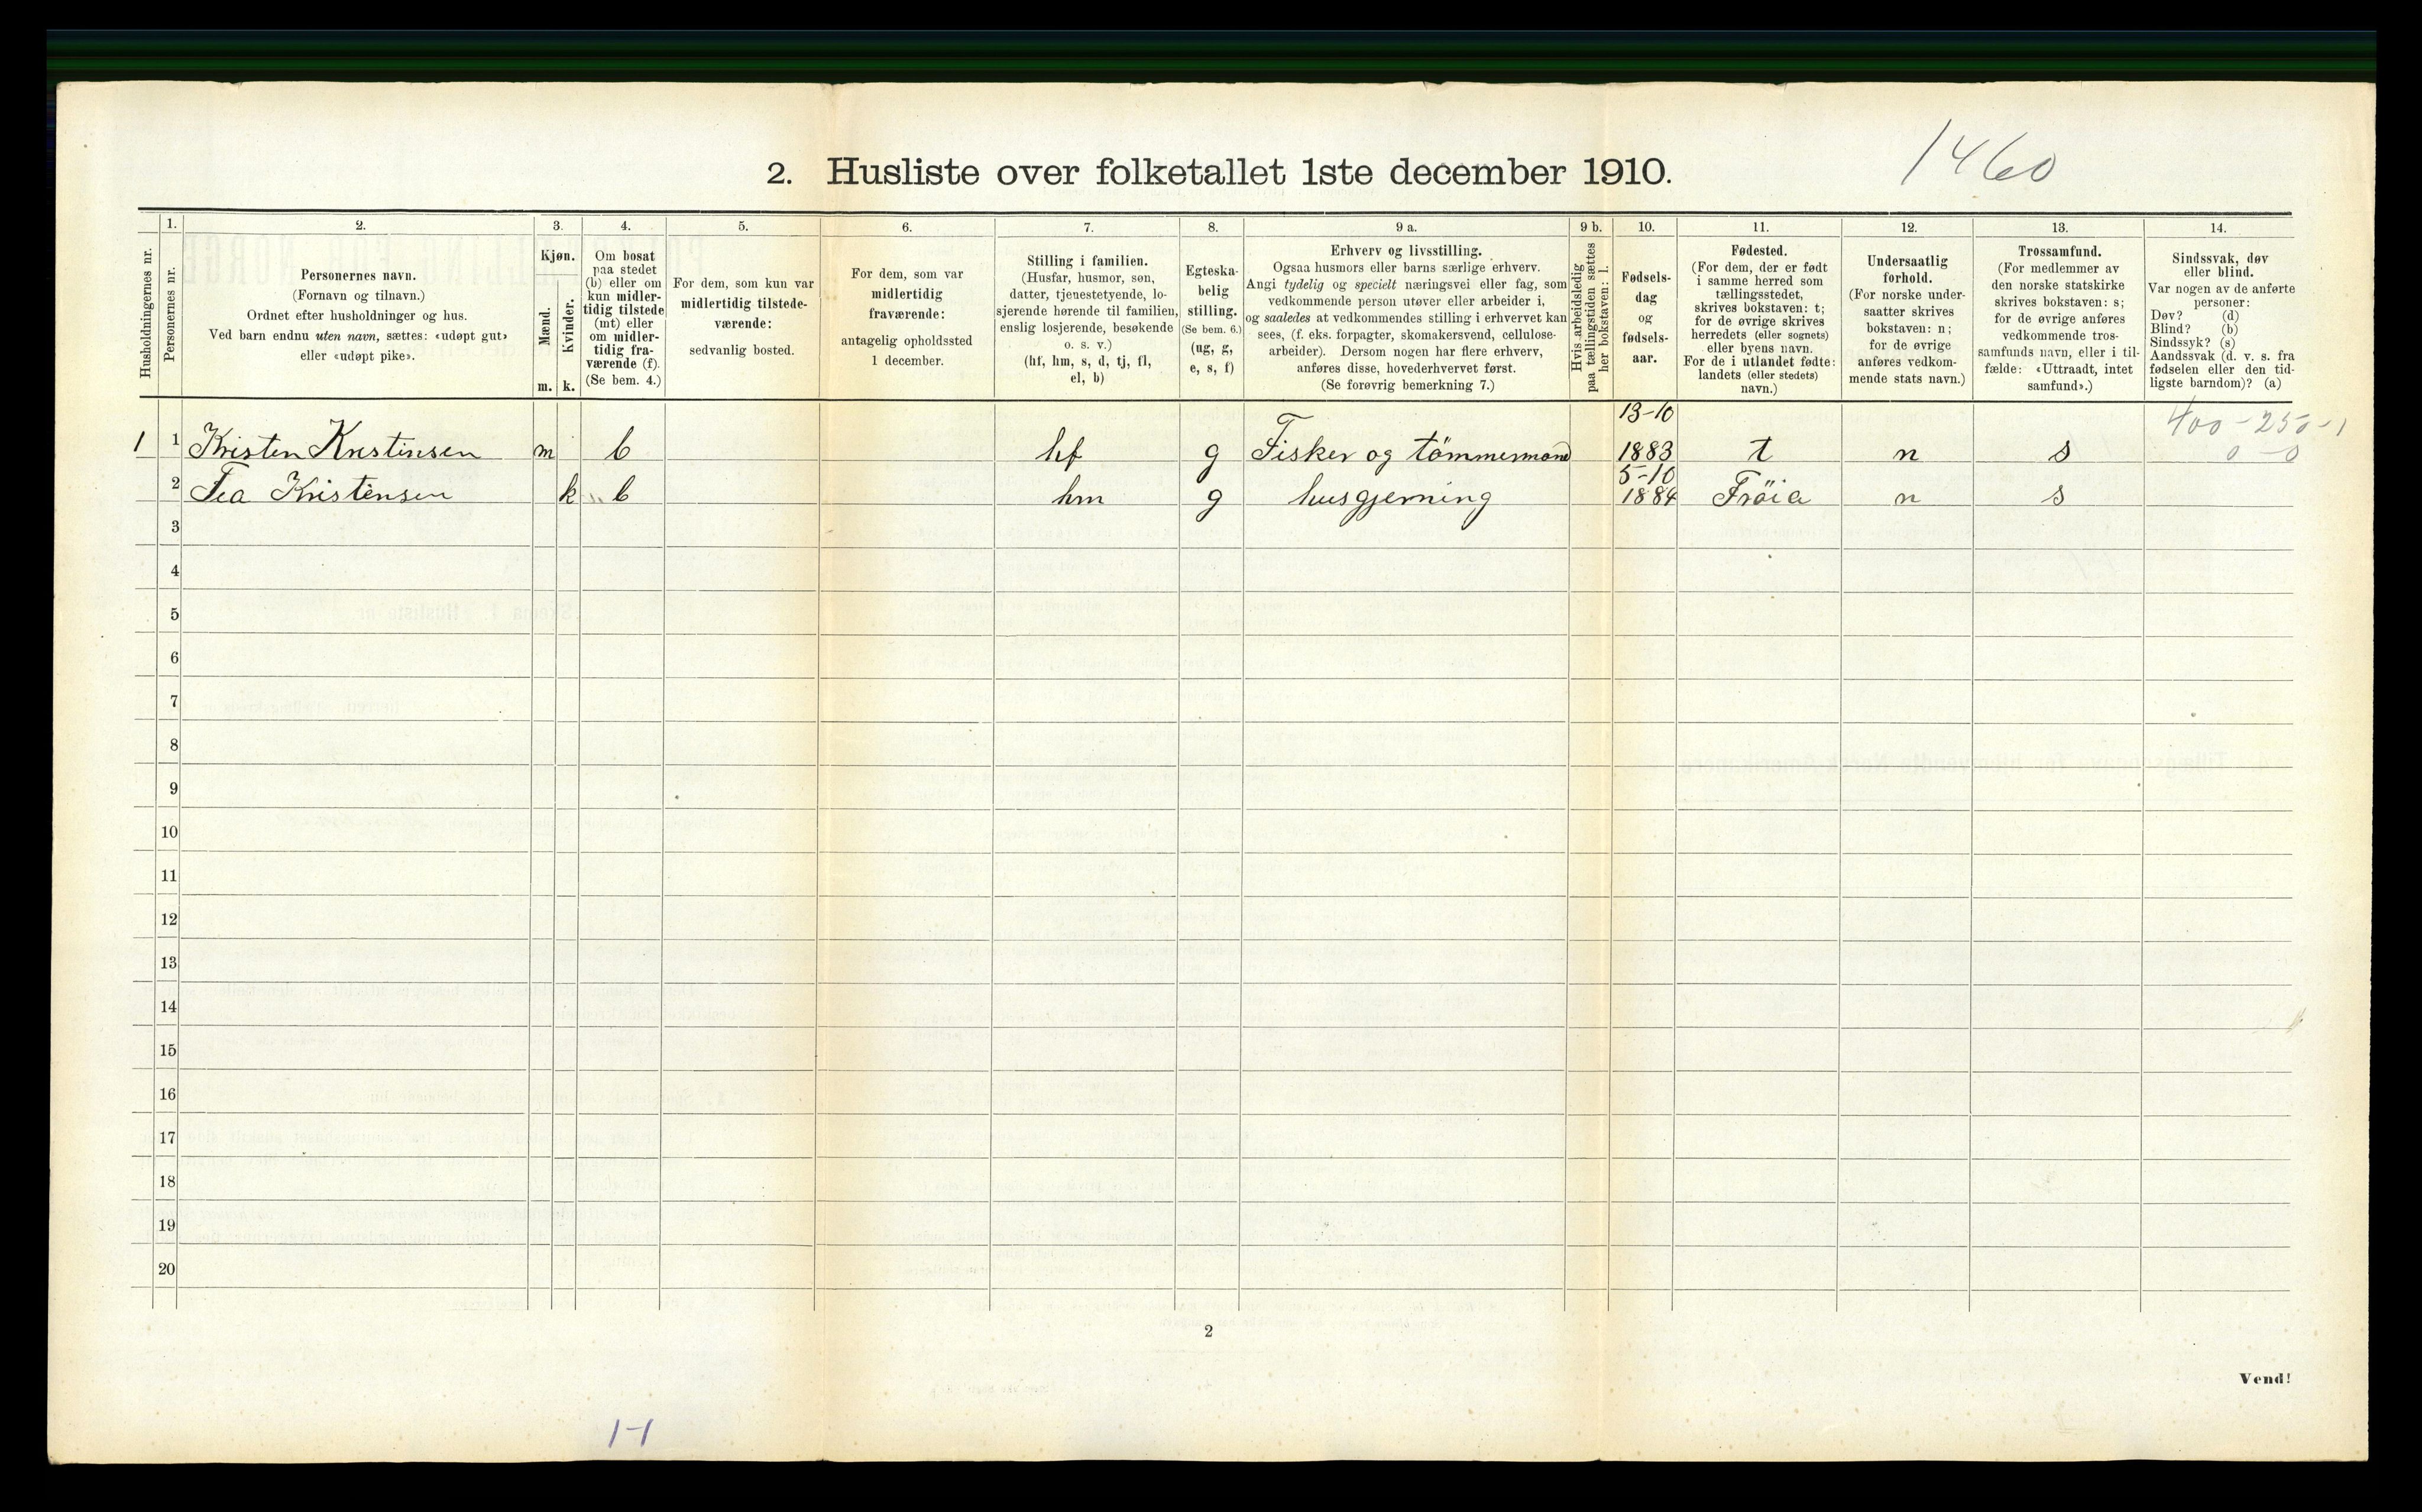 1460
2. Husliste over folketallet 1ste december 1910.
Husholdningernes nr.
1.
Personernes nr.
2.
Personernes navn.
(Fornavn og tilnavn.)
Ordnet efter husholdninger og hus.
Ved barn endnu uten navn, sættes: «udøpt gut»
eller «udøpt pike».
3.
Kjøn.
Mænd.
Kvinder.
m. k.
4.
Om bosat
paa stedet
(b) eller om
kun midler-
tidig tilstede
(mt) eller
om midler-
tidig fra-
værende (f).
(Se bem. 4.)
5.
For dem, som kun var
midlertidig tilstede-
værende:
sedvanlig bosted.
6.
For dem, som var
midlertidig
fraværende:
antagelig opholdssted
1 december.
7.
Stilling i familien.
(Husfar, husmor, søn,
datter, tjenestetyende, lo-
sjerende hørende til familien,
enslig losjerende, besøkende
o. s. v.)
(hf, hm, s, d, tj, fl,
el, b)
8.
Egteska-
belig
stilling.
(Se bem. 6.)
(ug, g,
e, s, f)
9 a.
Erhverv og livsstilling.
Ogsaa husmors eller barns særlige erhverv.
Angi tydelig og specielt næringsvei eller fag, som
vedkommende person utøver eller arbeider i,
og saaledes at vedkommendes stilling i erhvervet kan
sees, (f. eks. forpagter, skomakersvend, cellulose-
arbeider). Dersom nogen har flere erhverv,
anføres disse, hovederhvervet først.
(Se forøvrig bemerkning 7.)
9 b.
Hvis arbeidsledig
paa tællingstiden sættes
her bokstaven: l.
10.
Fødsels-
dag
og
fødsels-
aar.
11.
Fødested.
(For dem, der er født
i samme herred som
tællingsstedet,
skrives bokstaven: t;
for de øvrige skrives
herredets (eller sognets)
eller byens navn.
For de i utlandet fødte:
landets (eller stedets)
navn.)
12.
Undersaatlig
forhold.
(For norske under-
saatter skrives
bokstaven: n;
for de øvrige
anføres vedkom-
mende stats navn.)
13.
Trossamfund.
(For medlemmer av
den norske statskirke
skrives bokstaven: s;
for de øvrige anføres
vedkommende tros-
samfunds navn, eller i til-
fælde: «Uttraadt, intet
samfund».)
14.
Sindssvak, døv
eller blind.
Var nogen av de anførte
personer:
Døv? (d)
Blind? (b)
Sindssyk? (s)
Aandssvak (d. v. s. fra
fødselen eller den tid-
ligste barndom)? (a)
13-10 400-250-1
1 1 Kristen Kristensen m b hf g Fisker og tömmermand 1883 t n s 0-0
5-10
2 Tea Kristensen k b hm g husgjerning 1884 Fröia n s
3
4
5
6
7
8
9
10
11
12
13
14
15
16
17
18
19
20
2
Vend!
1-1